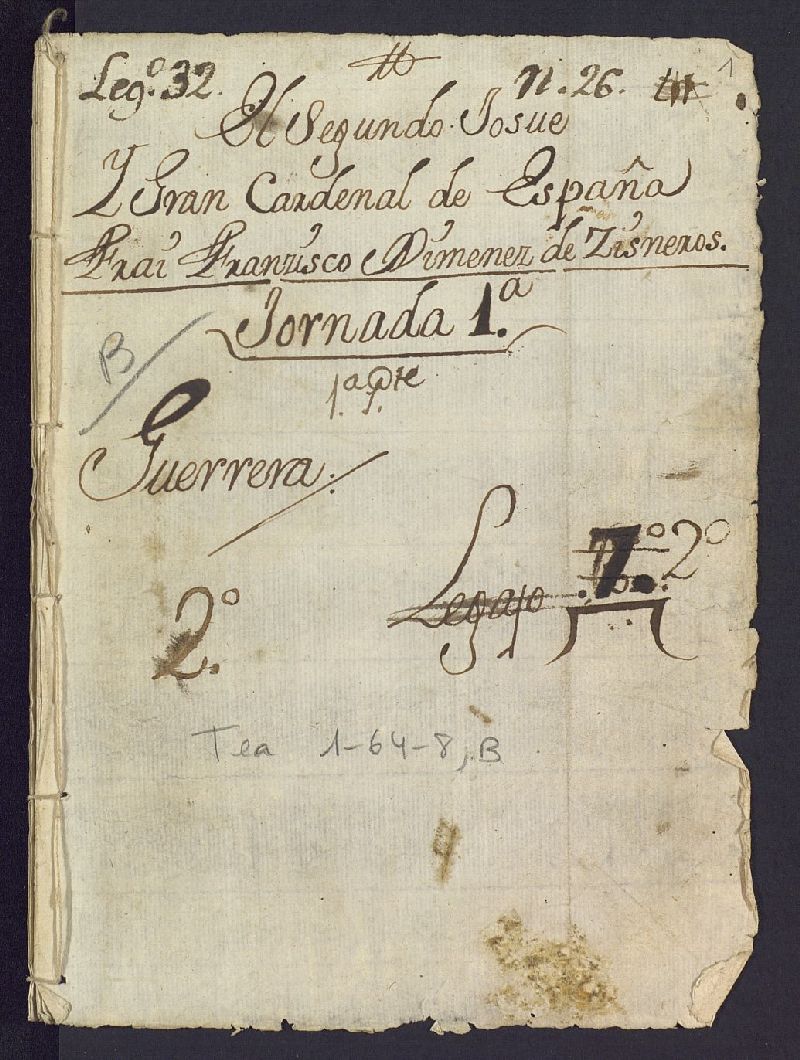 Leg.º 32. n. 26. 1
El Segundo Josue
Y Gran Cardenal de España
Frai Franzisco Ximenez de Zisneros.
Jornada 1.ª
1.ª Pte
B
Guerrera.
Legajo 7.º 2º
2.º
Tea 1-64-8, B